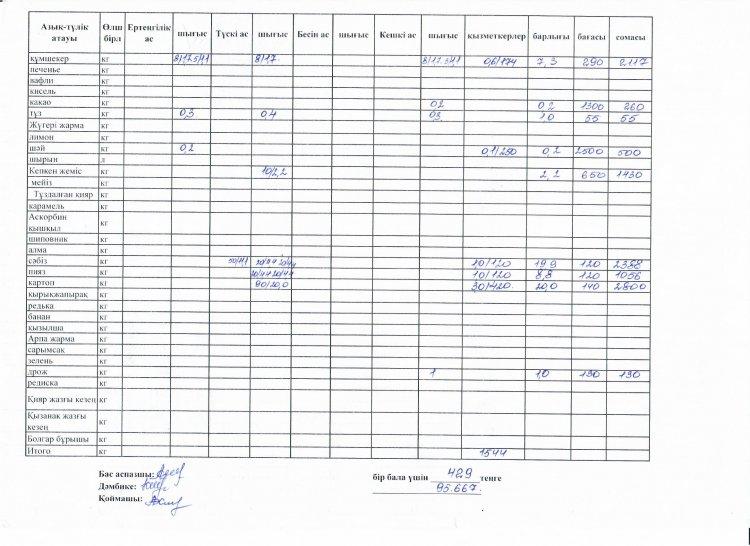 Азық-түлік атауы Өлш бірл Ертеңгілік ас шығыс Түскі ас шығыс Бесін ас шығыс Кешкі ас шығыс қызметкерлер барлығы бағасы сомасы
құмшекер кг 8/1.7 0,6/174 7,3 290 2117
печенье кг
вафли кг
кисель кг
какао кг 0.2 0,2 1300 260
тұз кг 0,3 0,4 0,3 1,0 55 55
Жүгері жарма кг
лимон кг
шай кг 0,2 0,1/250 0,2 2500 500
шырын л
Кепкен жеміс кг 10/2,2 2,2 650 1430
мейіз кг
Тұздалған қияр кг
карамель кг
Аскорбин қышқыл кг
шиповник кг
алма кг
сәбіз кг 10/120 19,9 120 2388
пияз кг 10/120 8,8 120 1056
картоп кг 90/20,0 30/420 20,0 140 2800
қырыққабырақ кг
редька кг
банан кг
қызылша кг
Арпа жарма кг
сарымсақ кг
зелень кг
дрож кг 1 1,0 190 190
редиска кг
Қияр жазғы кезең кг
Қызанақ жазғы кезең кг
Болгар бұрышы кг
Итого кг 1544
Бас аспазшы:
Дәмбике:
Қоймашы:
бір бала үшін 429 теңге
95.667.